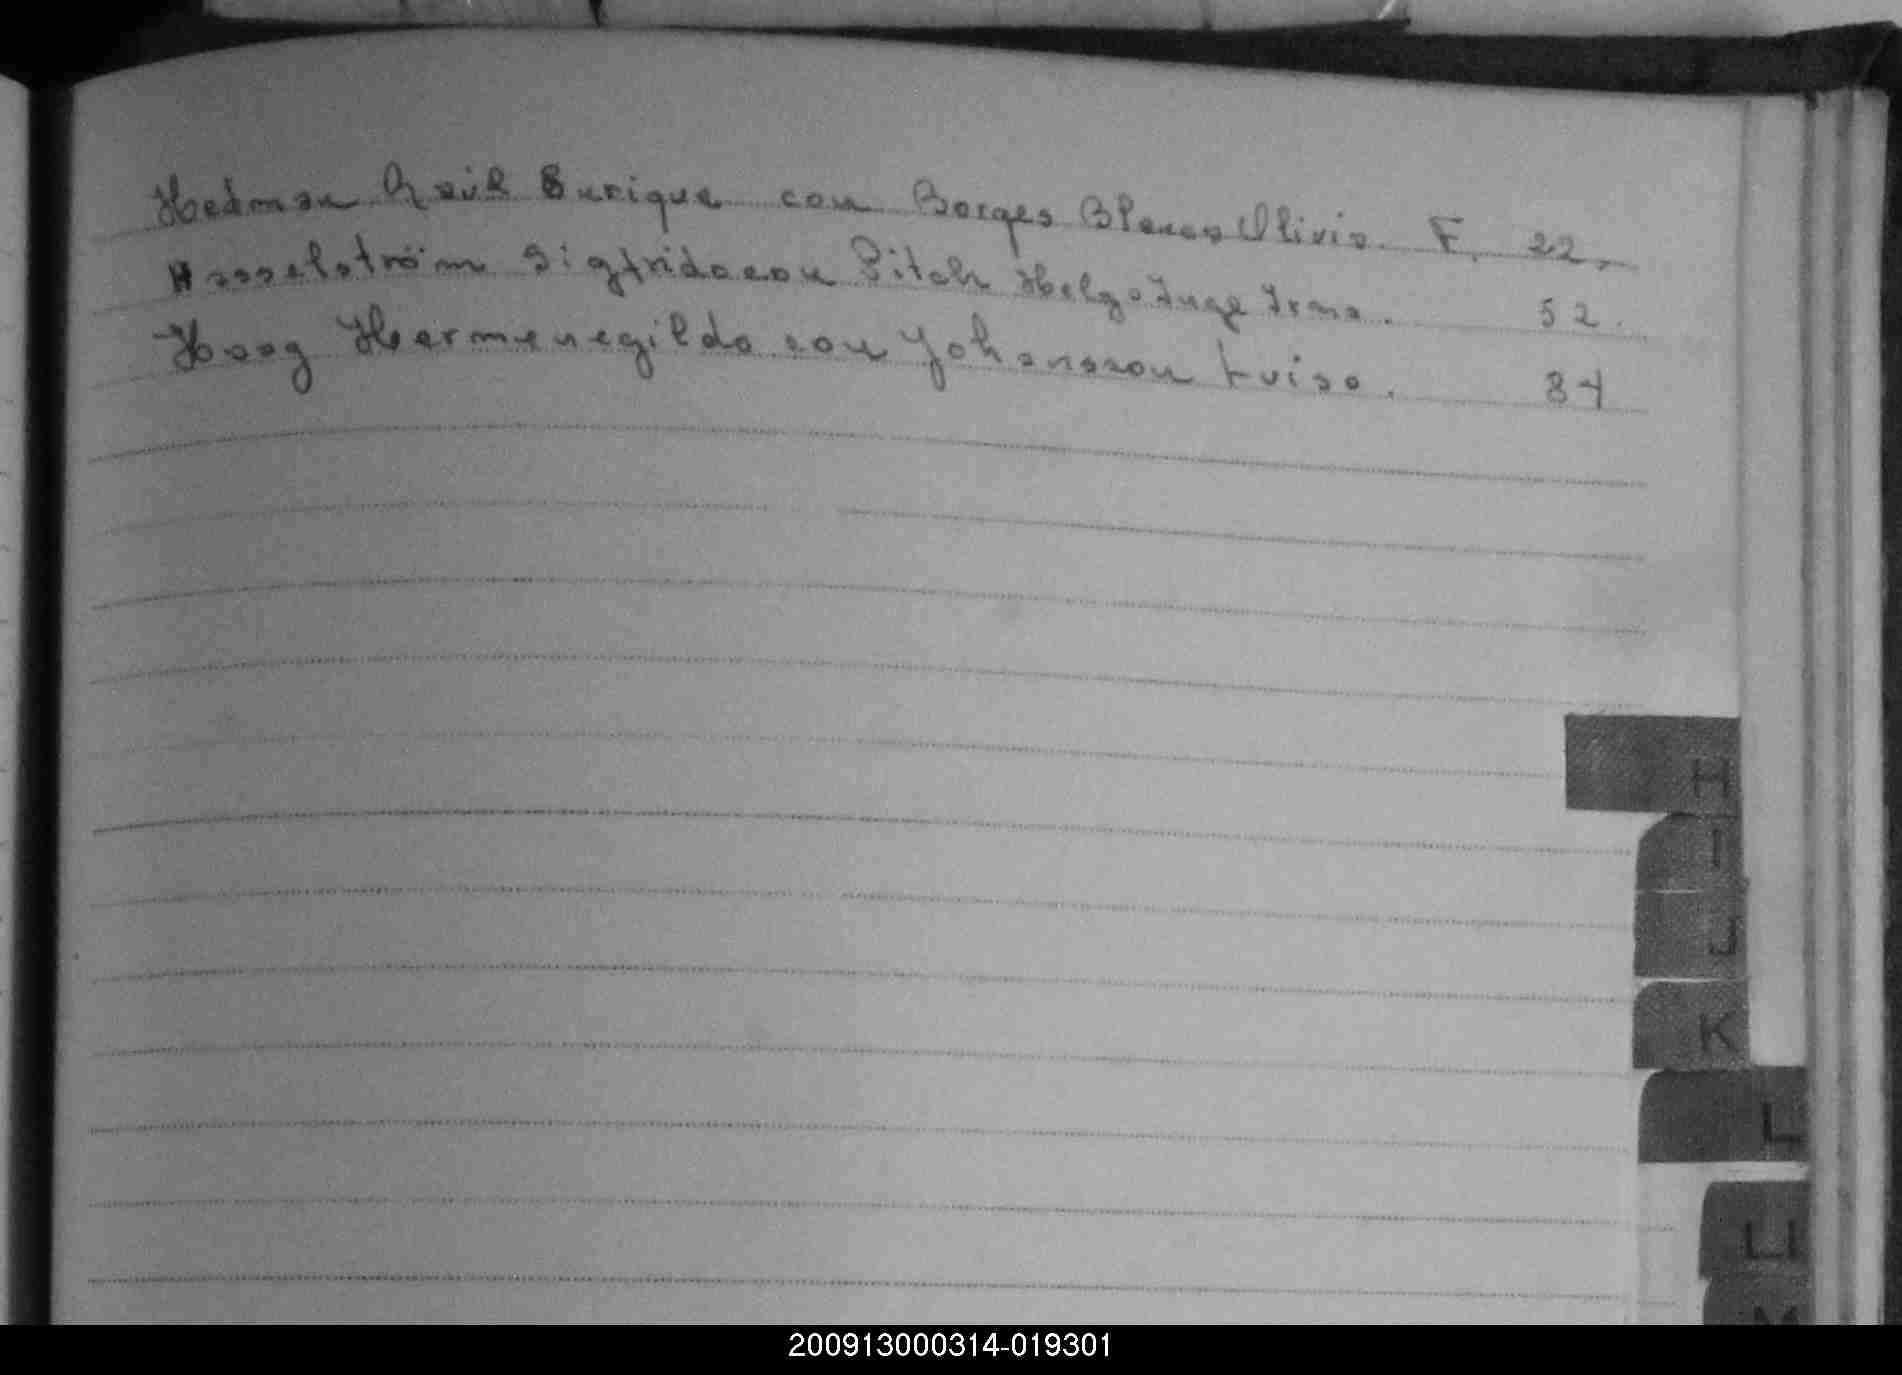 Hedman Raúl Enrique con Borges Blanca Olivia. F. 22.
Hasselström Sigfrido con Pitch Helga Inge Irma. 52.
Haag Hermenegildo con Johansson Luisa. 84
H
I
J
K
L
LL
M
200913000314-019301